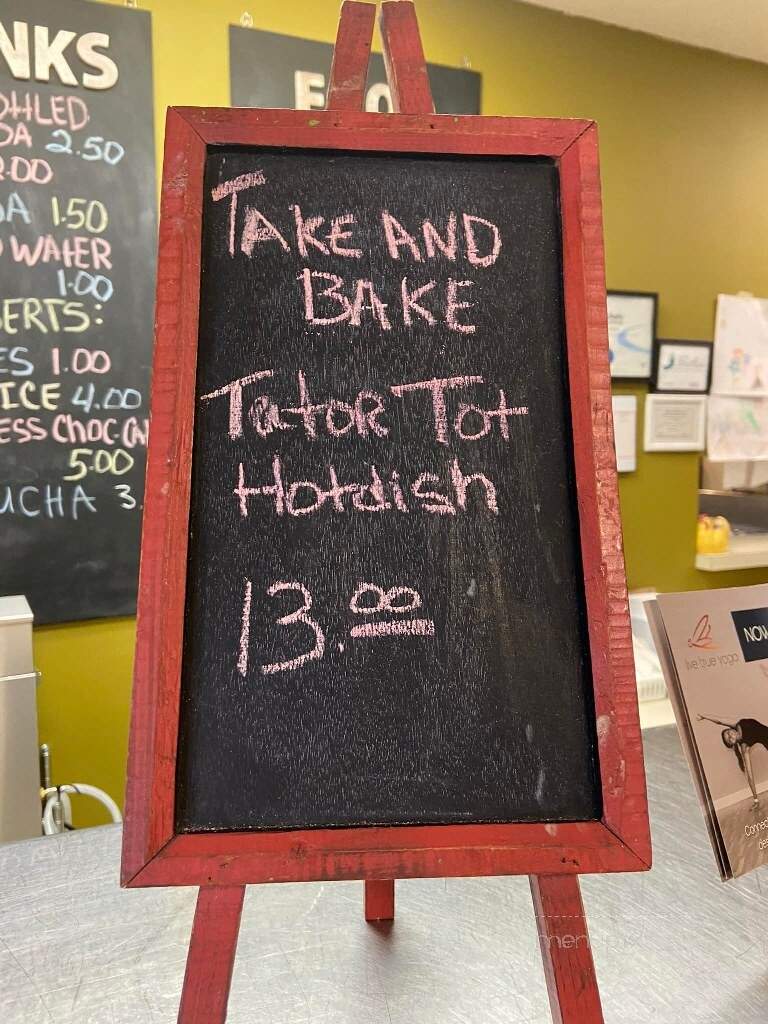 NKS
2.50
.00
1.50
WATER
1.00
ERTS:
ES 1.00
ICE 4.00
ESS CHOC.
5.00
UCHA 3.
TAKE AND
BAKE
Tator Tot
Hotdish
13.00
live true yoga
NOW